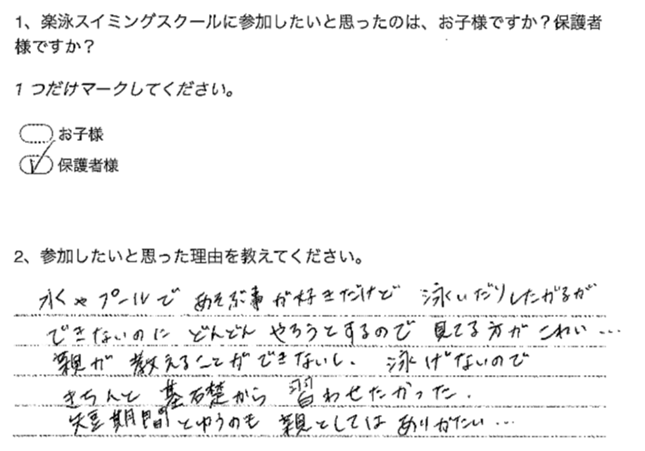 1、楽泳スイミングスクールに参加したいと思ったのは、お子様ですか？保護者
様ですか？
1 つだけマークしてください。
お子様
保護者様
2、参加したいと思った理由を教えてください。
水やプールで あそぶ事が好きだけど 泳いだりしたがるが
できないのに どんどん やろうとするので 見てる方が こわい…
親が 教えることができないし、泳げないので
きちんと 基石楚から 習わせたかった.
短期間とゆうのも 親としては ありがたい…